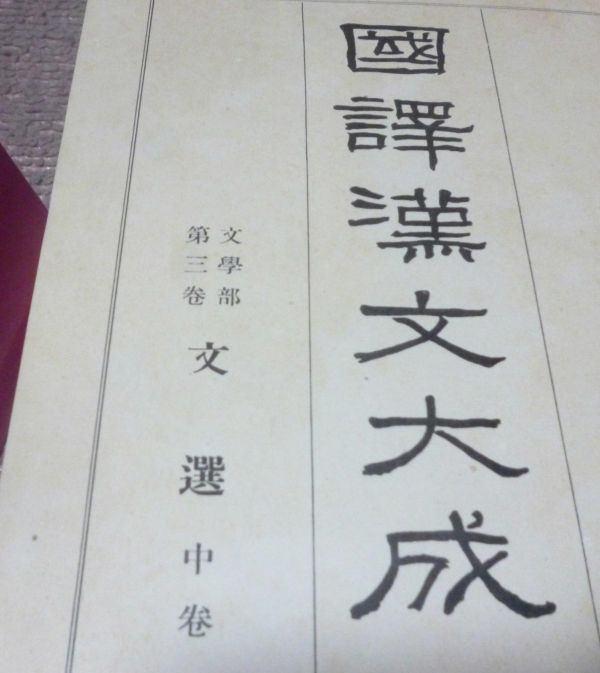 國譯漢文大成
文學部
第三卷
文選中卷